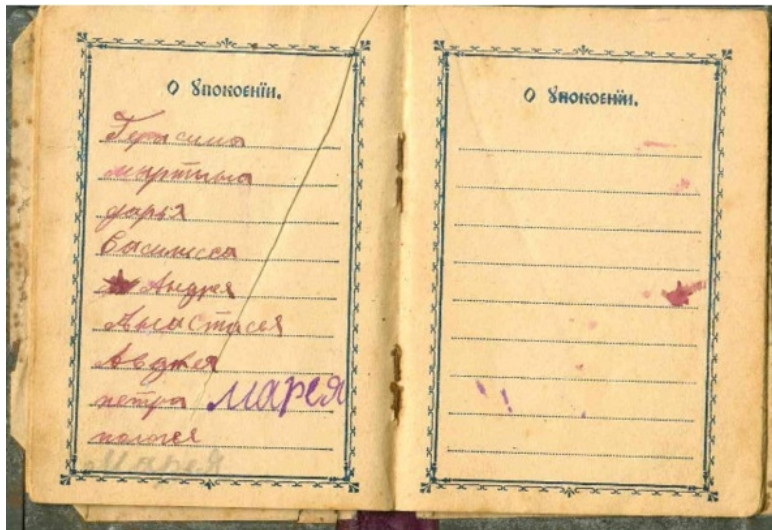 О Упокоенїи.
Герасима
мартына
дарья
Василсса
Андрея
Анастасея
Авдкея
петра марея
пологея
Марея
О Упокоенїи.